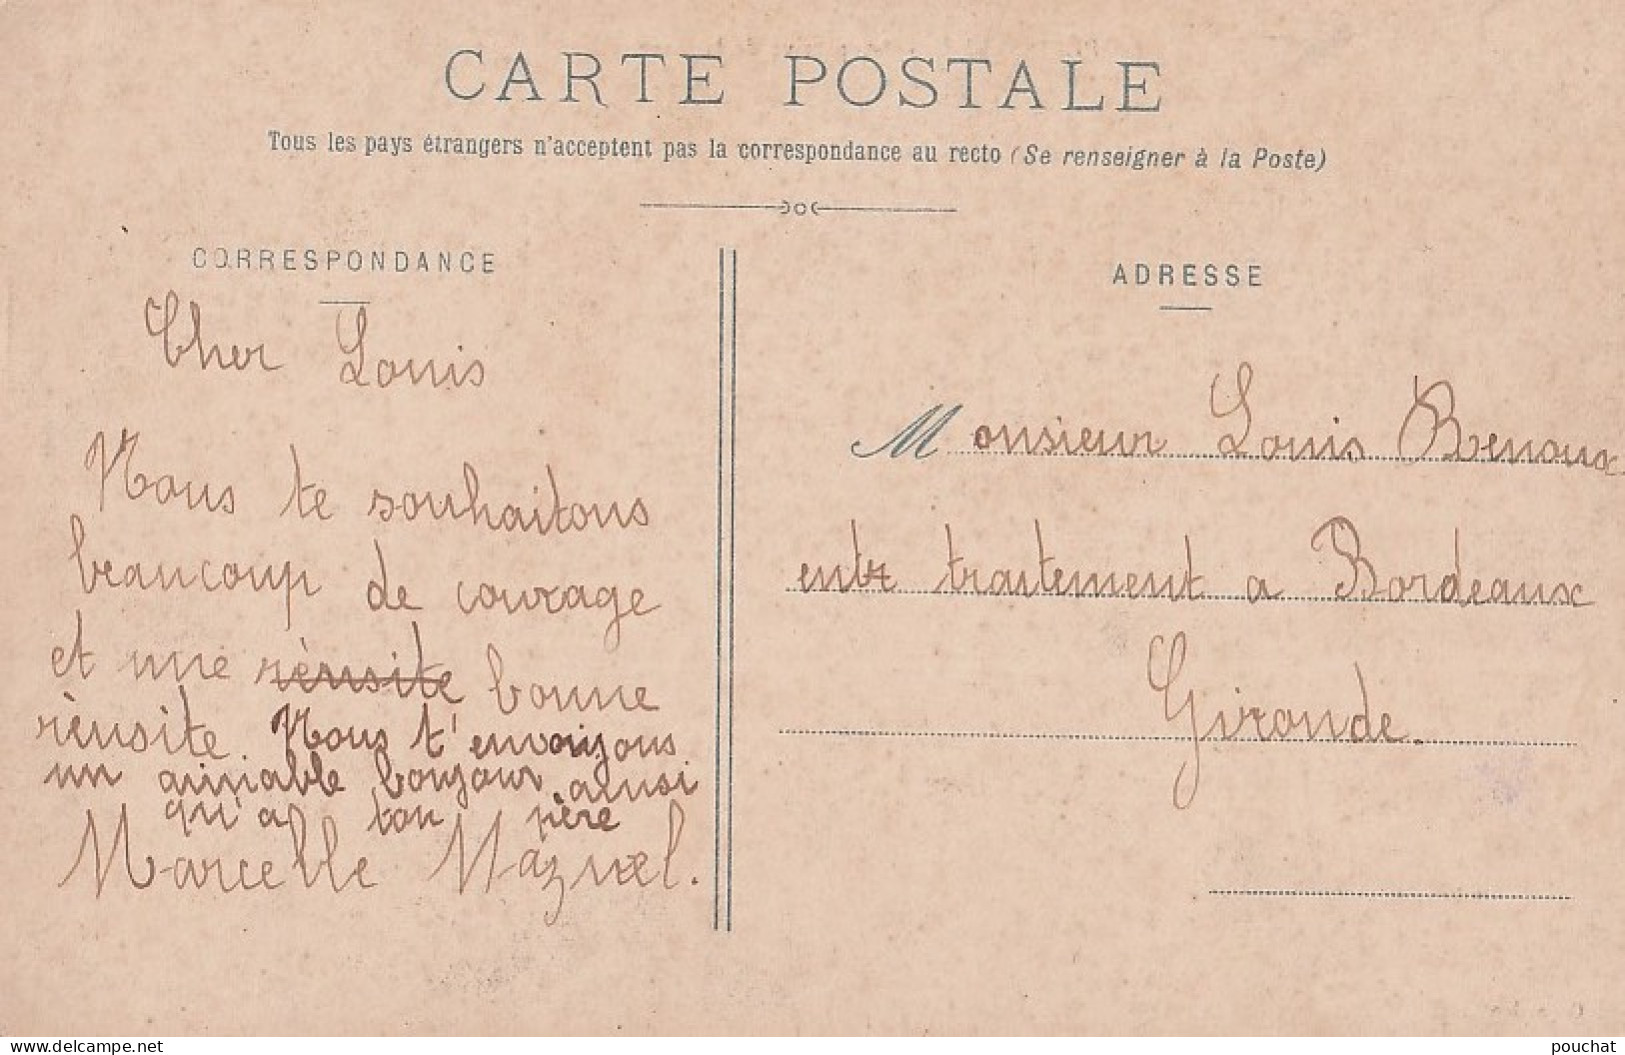 CARTE POSTALE
Tous les pays étrangers n'acceptent pas la correspondance au recto (Se renseigner à la Poste)
CORRESPONDANCE
Cher Louis
Nous te souhaitons
beaucoup de courage
et une rèusite bonne
rèusite. Nous t'envoiyons
un aimable bonjour ainsi
qu'a ton père
Marcelle
ADRESSE
Monsieur Louis Benoux
entr traitement a Bordeaux
Gironde.
www.delcampe.net
pouchat